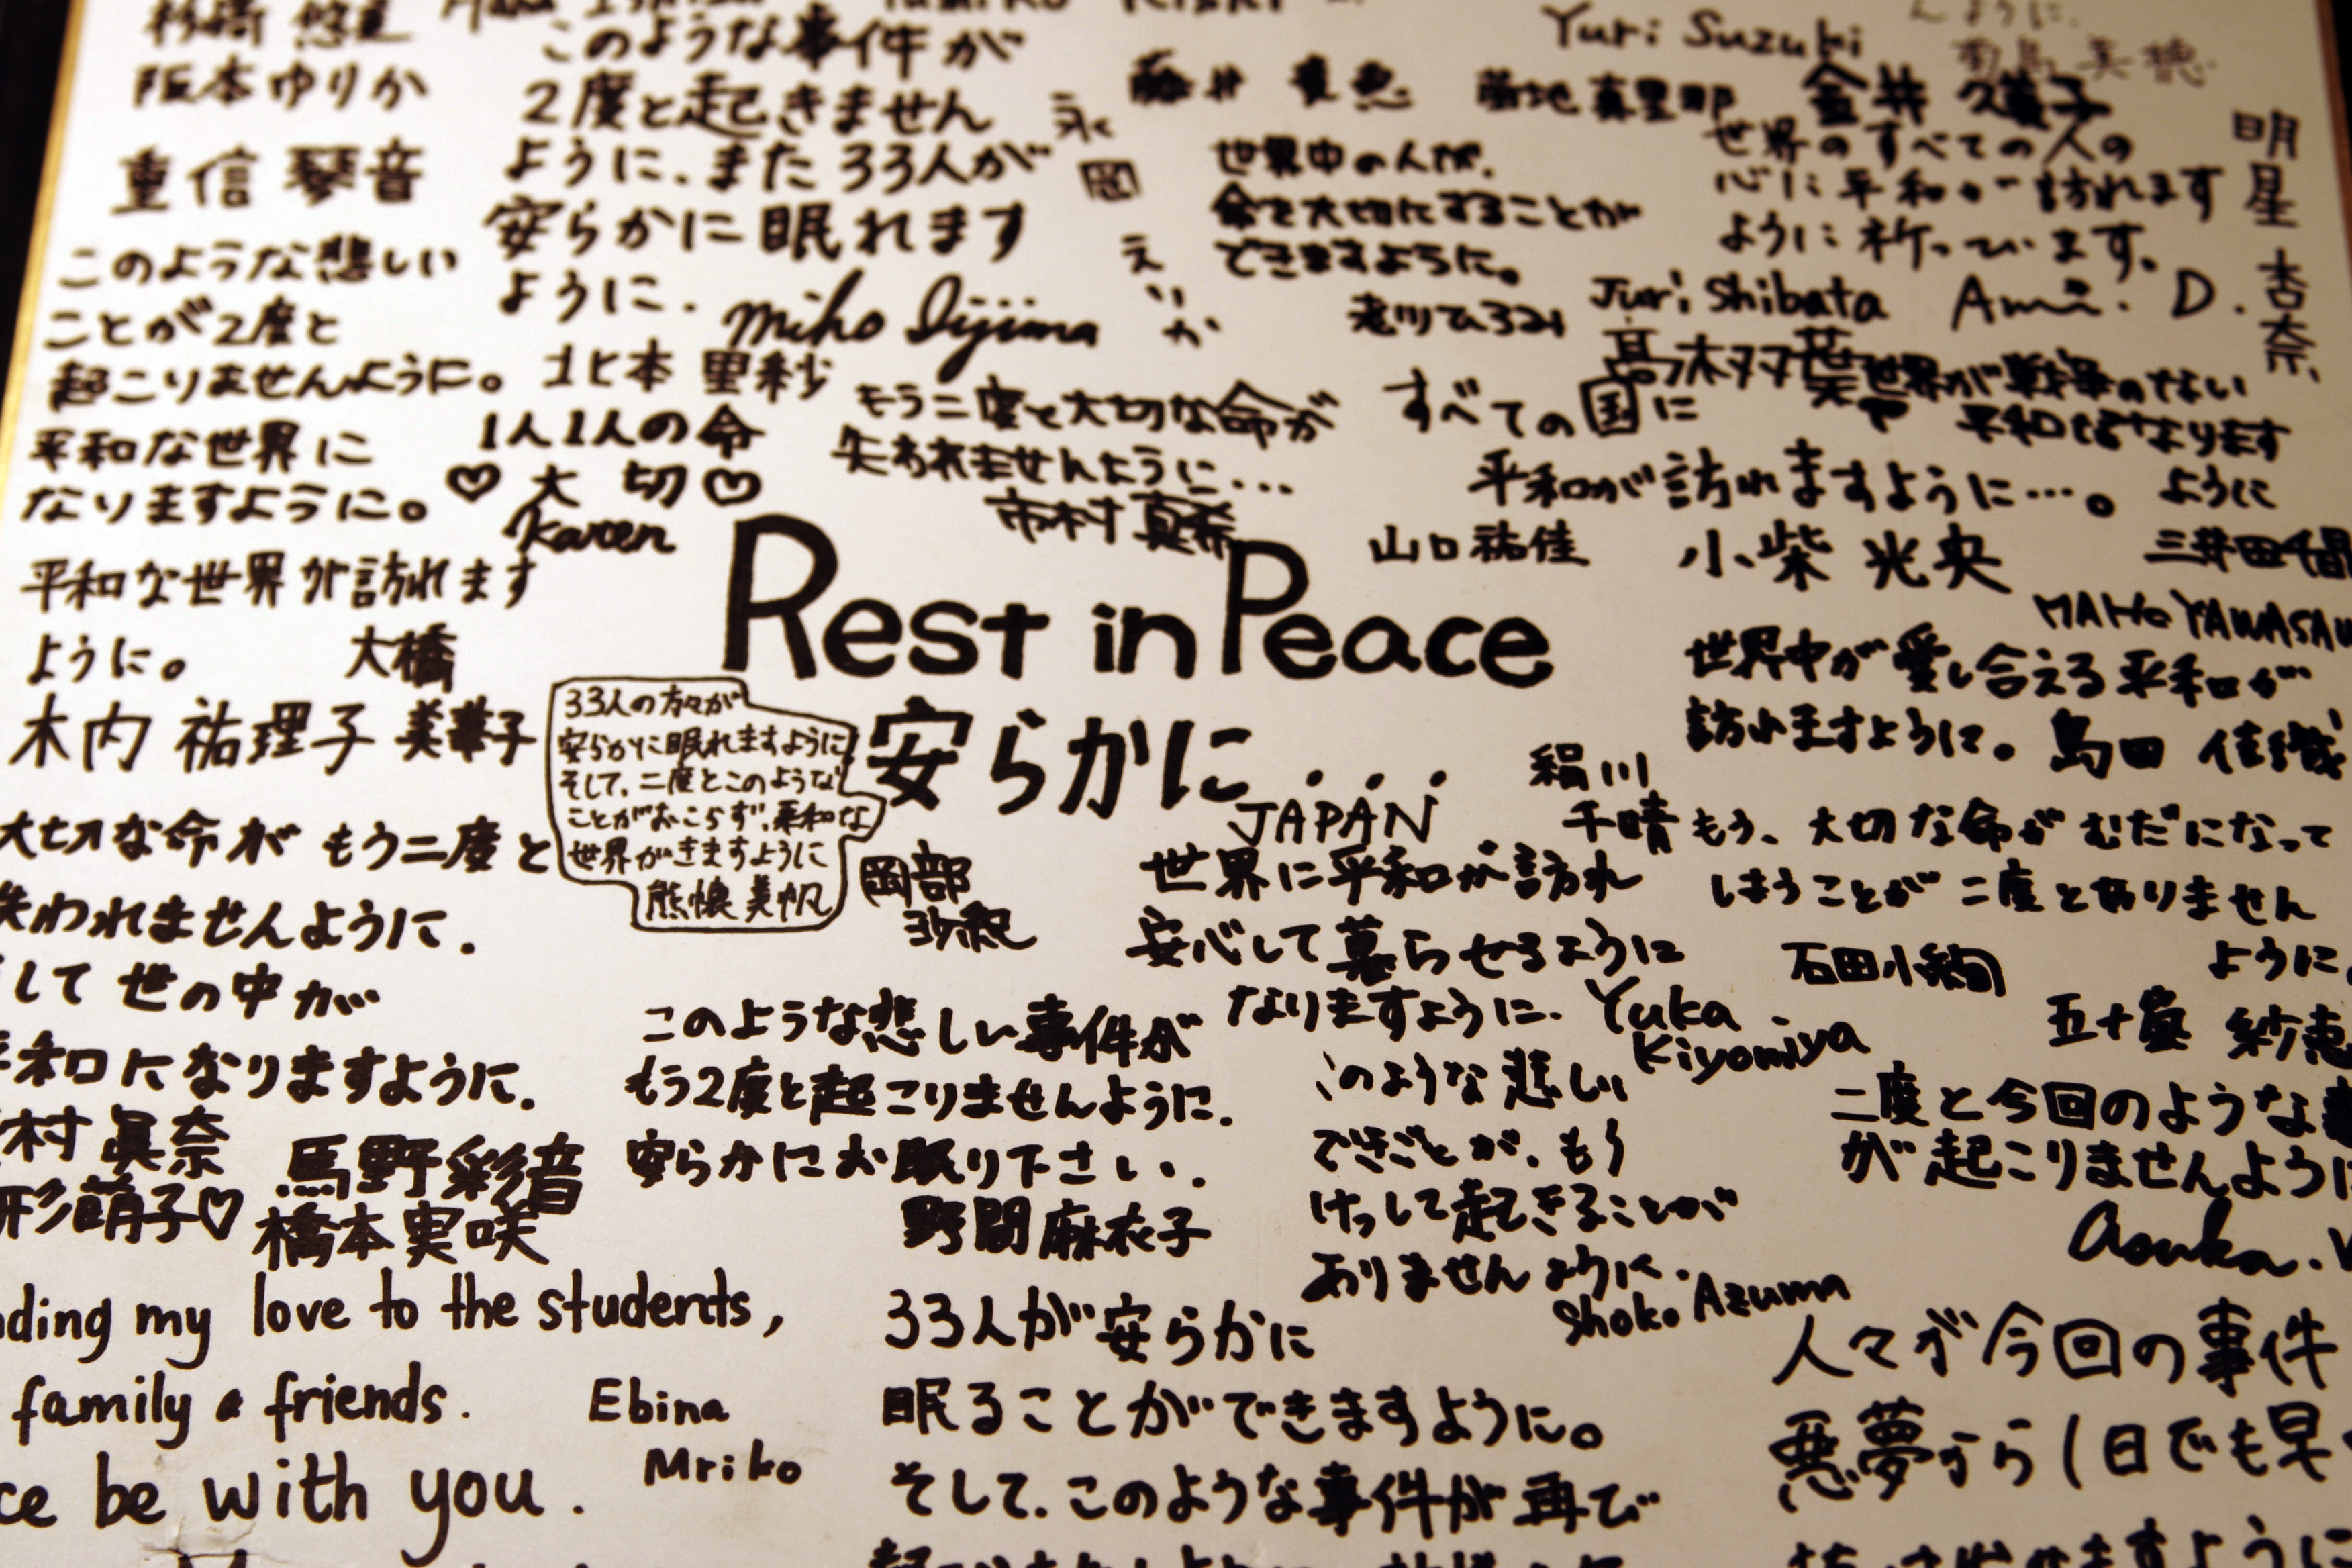 阪本ゆりか
重信 琴音
このような悲しい
ことが2度と
起こりませんように。
平和な世界に
なりますように。
平和な世界が訪れます
ように。
大橋
美華子
木内 祐理子
大切な命が もう二度と
失われませんように.
して 世の中が
平和になりますように.
村 眞奈
形萌子♡
馬野彩音
橋本実咲
ding my love to the students,
family & friends.
ce be with you.
Ebina
Mriko
このような事件が
2度と起きません
ように.また 33人が
安らかに眠れます
ように.
Miho Iijima
北本 里紗
1人1人の命
♡大 切♡
Karen
永
岡
え
り
か
もう二度と大切な命が
失われませんように...
市村 真希
Rest in Peace
安らかに...
JAPAN
33人の方々が
安らかに眠れますように
そして、二度とこのような
ことがおこらず、平和な
世界がきますように
美帆
岡部
紗紀
このような悲しい事件が
もう2度と起こりませんように.
安らかにお眠り下さい.
野間麻衣子
33人が安らかに
眠ることができますように。
そして.このような事件が再び
Yuri Suzuki
んように.
美穂
藤井 貴恵
菊地真里那
金井
世界中の人が、
命を大切にすることが
できますように。
世界のすべての人の
心に平和が訪れます
ように祈っています。
Juri Shibata
Ami. D.
明
星
杏
奈
高木双葉
すべての国に
平和が訪れますように…。
山口祐佳
小柴 光央
世界が戦争のない
平和な
なります
ように
三井田千晶
MAHO YAWASA
世界中が愛し合える平和が
訪れますように。
島田 佳織
絹川
千晴
もう、大切な命がむだになって
しまうことが二度とありません
ように。
石田小絢
五十嵐 紗恵
世界に平和が訪れ
安心して暮らせるように
なりますように.
Yuka
Kiyomiya
このような悲しい
できごとが、もう
けっして起きることが
ありませんように.
Shoko Azuma
二度と今回のような
が起こりませんように
Asuka.
人々が今回の事件
悪夢から1日でも早